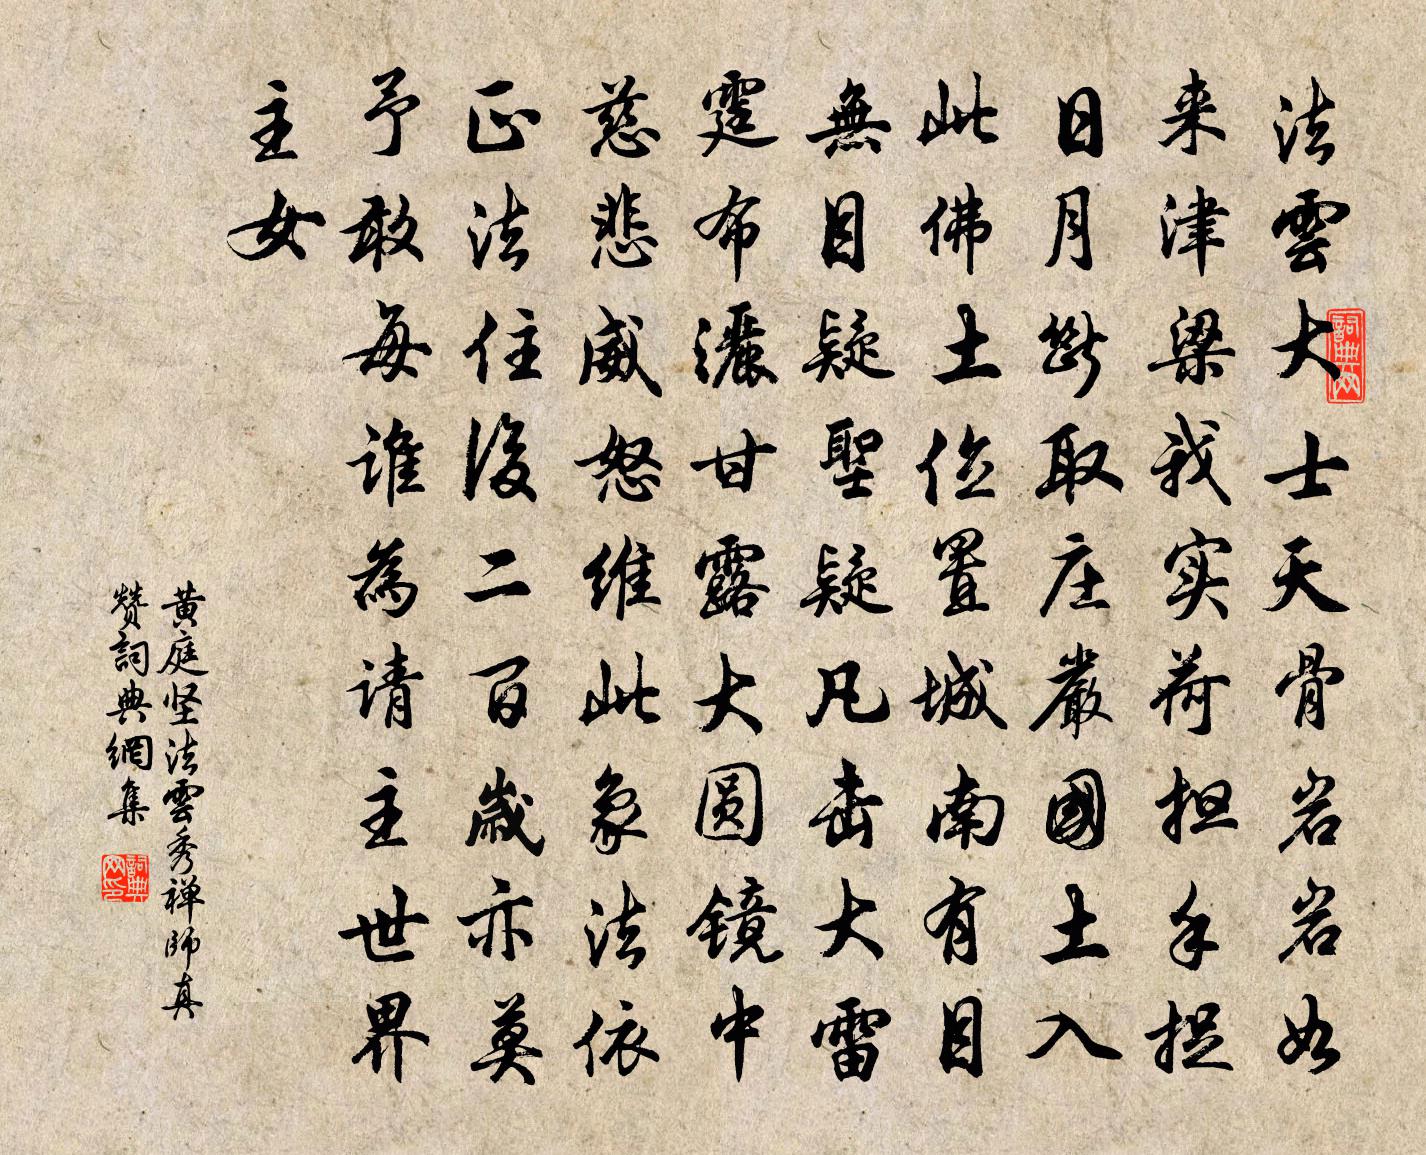 法雲大士天骨岩岩如
来津梁我实荷担手捉
日月断取庄嚴國土入
此佛土位置城南有目
無目疑聖疑凡击大雷
霆布灑甘露大圆镜中
慈悲威怒维此象法依
正法住後二百歲亦莫
予敢每誰為请主世界
主女
黄庭坚法雲秀禅師真
赞詞典網集
詞典网
詞典网印